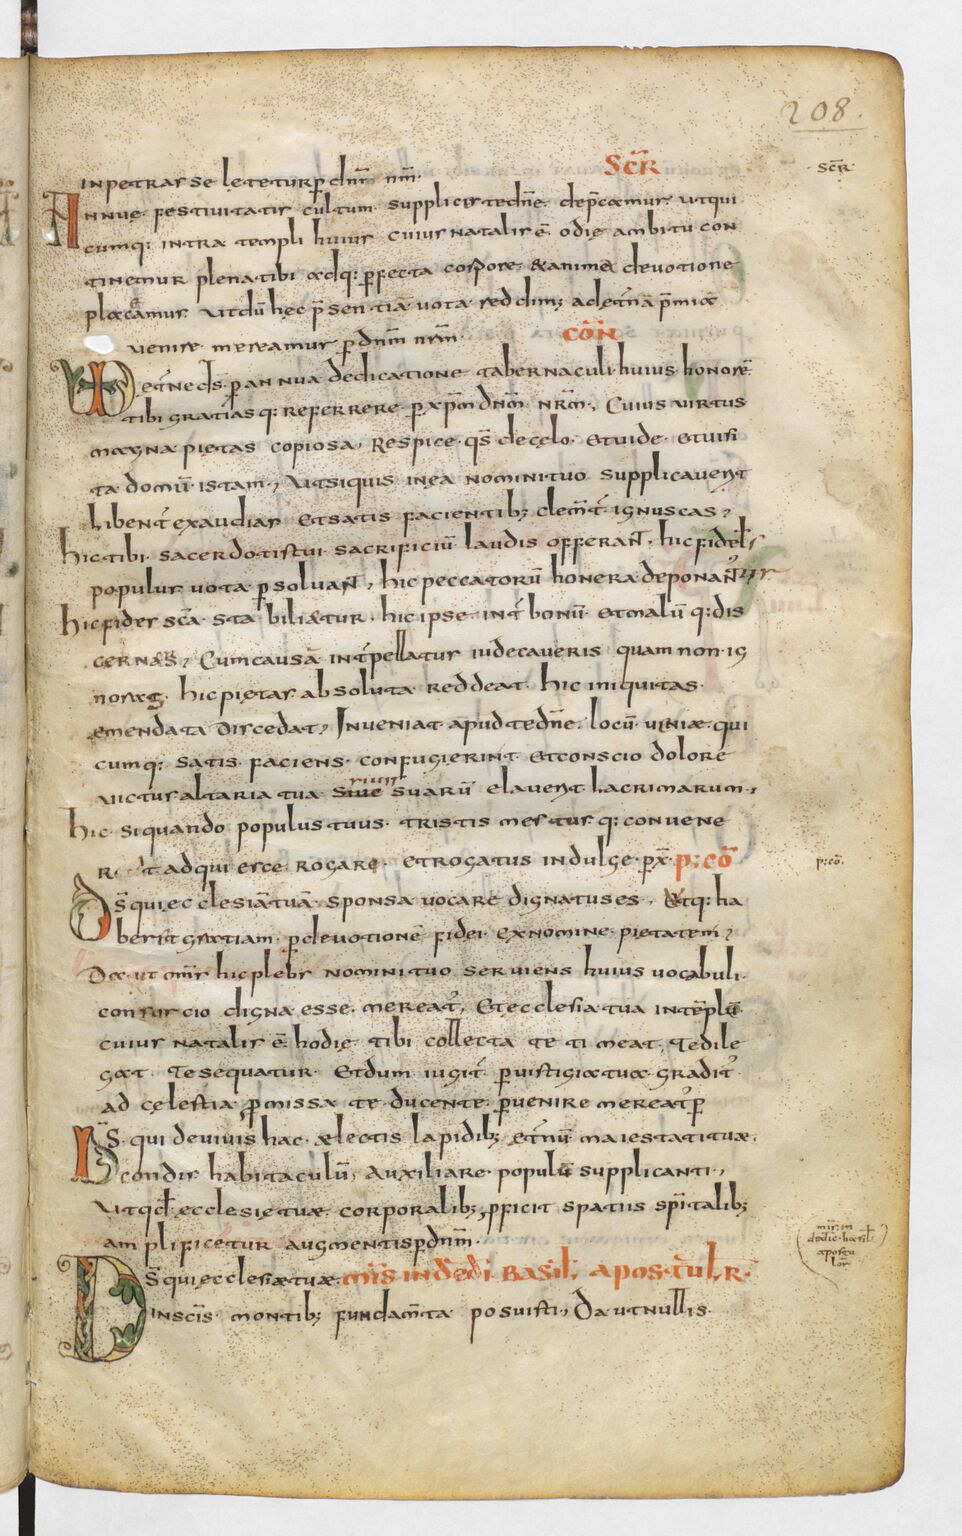 208.
SCR̄
inpetrasse lęteturp̄ dn̄m nr̄m.
scr̄
Annue. festiuitatis cultum supplicis tedn̄e. dep̄camur. utqui
cumq: intra templi huius cuiusnatalisē. odię ambitu con
tinemur plenatibi adq: p̄fecta corpore. &anima deuotione
placeamus. utdū hęc p̄sentia uota reddim; adet̄na p̄mia
uenire. mereamur p̄dn̄m nr̄m.
CŌN
VD et̄neds̄. p̄annua dedicatione tabernaculi huius honorē
tibi gratiasq: referrere. p̄xp̄m dn̄m. nr̄m. Cuius uirtus
magna pietas copiosa. Respice. qs̄ decęlo. etuide. etuisi
ta domū istam. utsiquis inea nominituo supplicauerit
libent̄ exaudias etsatis facientib; clem̄t̄ ignuscas.
hictibi. sacerdotistui sacrificiū laudis offeran̄t. hicfidelis
populus uota p̄soluan̄t. hicpeccatorū honera deponan̄tur
hicfides scā. stabili&tur. hicipse. int̄ bonū. etmalū q: dis
cernas. Cumcausa int̄pellatur iudecaueris quam non ig
noras. hicpietas absoluta reddeat. hic iniquitas.
emendata discedat. Inueniat apudtedn̄e. locū. uiniæ. qui
cumq: satis faciens. confugierint. etconscio dolore
uictusaltaria tua. siue riuis suarū elauerit lacrimarum.
hic siquando populus tuus. tristis mestusq: conuene
r. t adquiesce. rogare. etrogatus indulge. pax. p: cō
p: cō.
Ds̄qui ecclesiātuā. sponsa uocare dignatuses. &tq: ha
beris gratiam. p̄deuotionē fidei. exnomine. pietatem.
Da. ut om̄is hicplebs nominituo seruiens huius uocabuli.
consorcio digna esse. mereat̄. Etecclesia tua intēplū
cuius natalis ē. hodię tibi collecta te timeat. tedile
gat tesequatur. etdum iugit̄ p̄uistigiatua gradit̄
ad cęlestia p̄missa te ducente. p̄uenire mereat̄ p̄
Ds̄. qui deuiuis hac. ælectis lapidib; et̄nū maiestatituæ.
condis habitaculū, auxiliare. populū supplicanti.
utqd̄. ecclesię tuæ. corporalib; p̄ficit spatiis sp̄italib;
amplificetur augmentis p̄dn̄m.
Ds̄quięcclesiætuæ. MIS IN DEDI BASIL APOSTULR.
inscīs montib; fundam̄ta posuisti. Da utnullis.